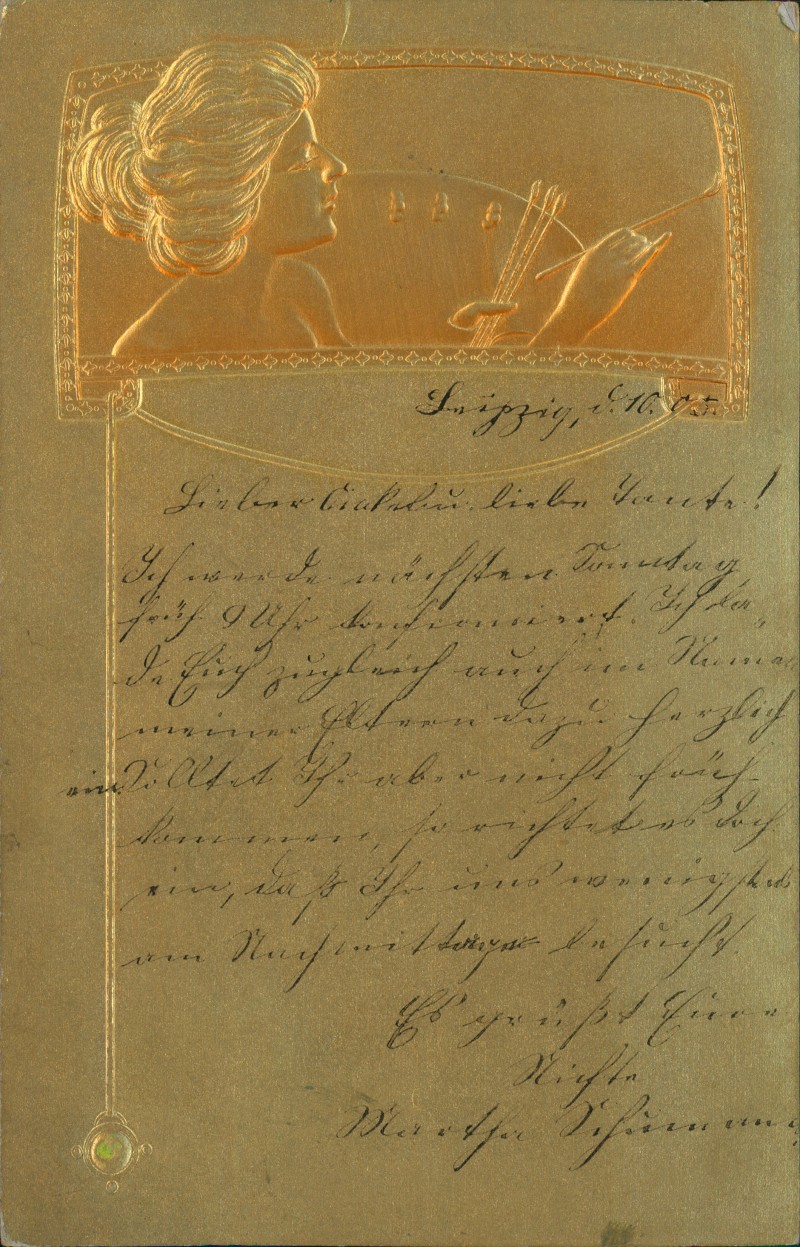 Leipzig, d. 10. 05.
Lieber Onkel u. liebe Tante!
Ich werde nächsten Sonntag
früh 9 Uhr konfirmiert. Ich la„
de Euch zugleich auch im Namen
meiner Eltern dazu herzlich
ein. Solltet Ihr aber nicht früh
kommen, so richtet es doch
ein, daß Ihr uns wenigstens
am Nachmittage besucht.
Es grüßt Eure
Nichte
Martha Schumann